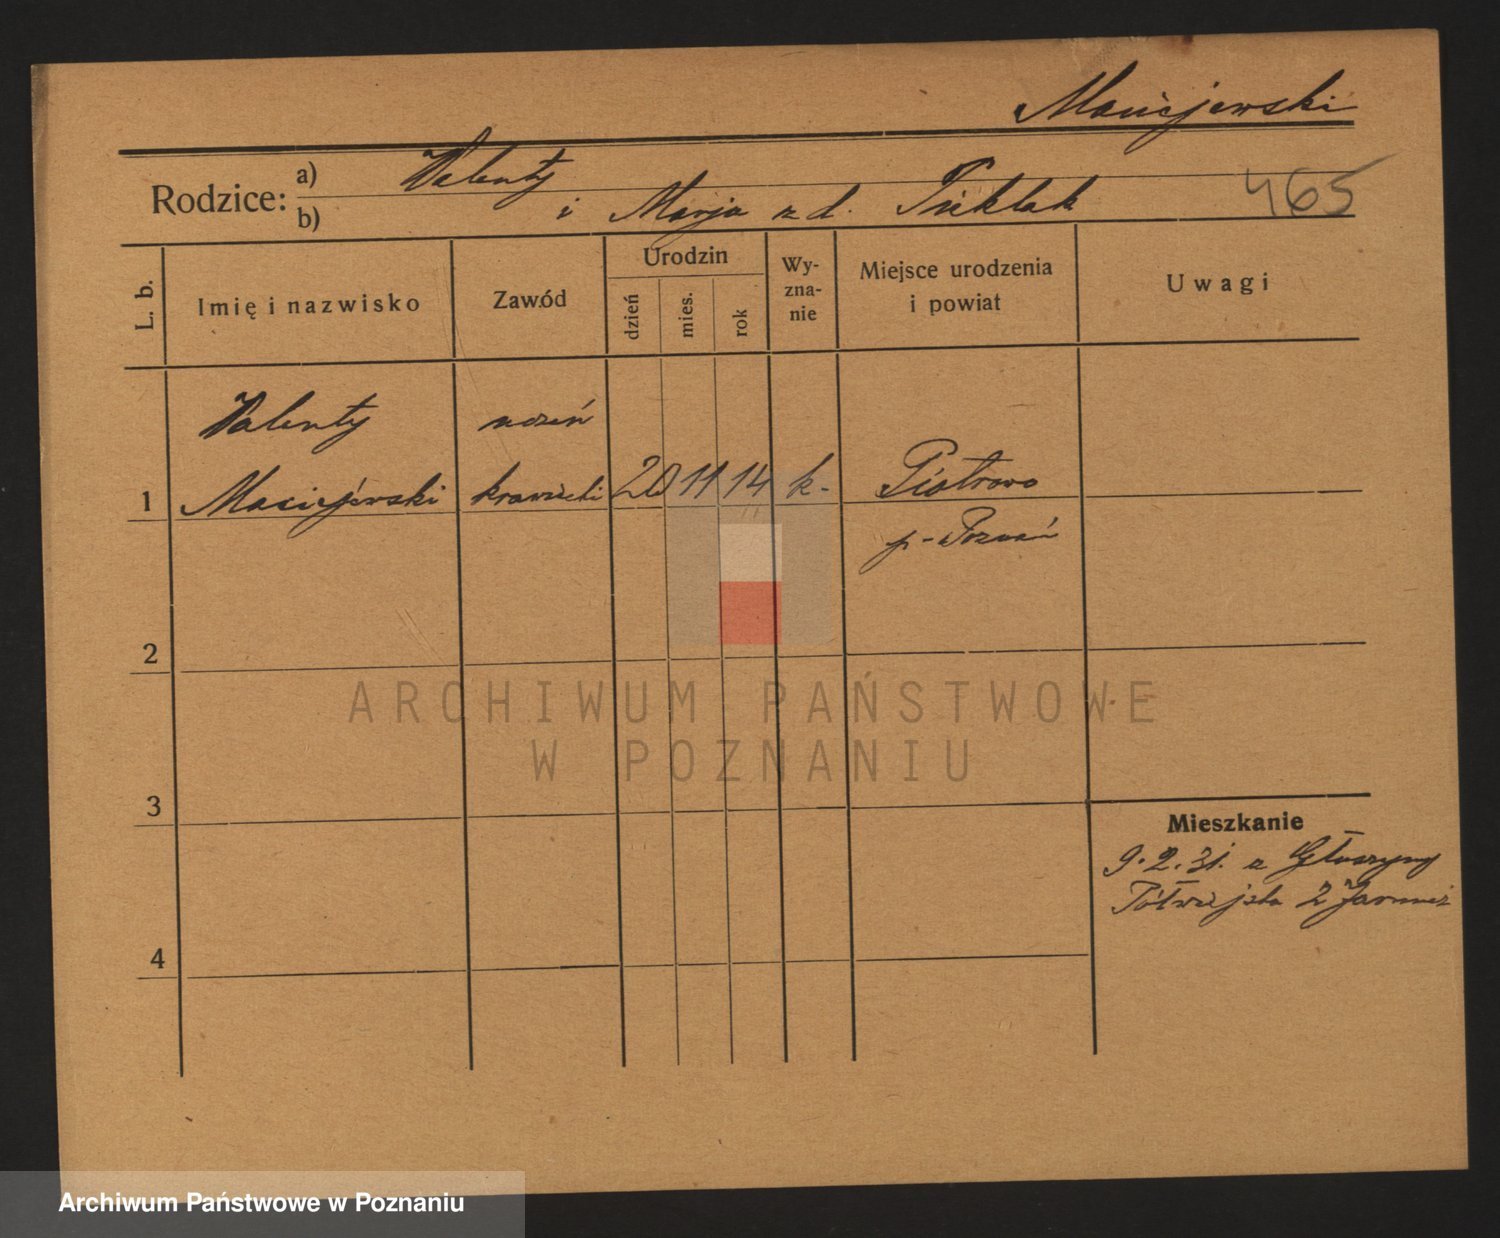 Maciejewski
Rodzice: a) Walenty
b) i Marja z d.
465
L. b.
Imię i nazwisko
Zawód
Urodzin
dzień
mies.
rok
Wy-
zna-
nie
Miejsce urodzenia
i powiat
Uwagi
Walenty uczeń
1 Maciejewski krawiecki 20 11 14 k. Piotrowo
p. Poznań
2
3
4
Mieszkanie
9.2.31. z Głuszyny
Półwiejska 2
ARCHIWUM PAŃSTWOWE
W POZNANIU
Archiwum Państwowe w Poznaniu